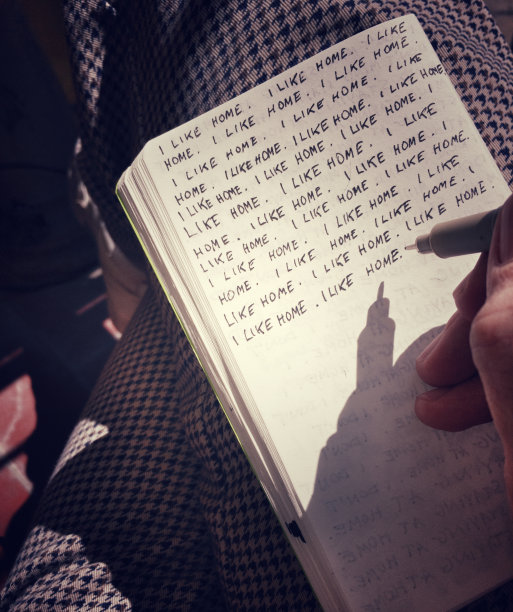 I LIKE HOME. I LIKE HOME. I LIKE
HOME. I LIKE HOME. I LIKE HOME.
I LIKE HOME. I LIKE HOME. I LIKE
HOME. I LIKE HOME. I LIKE HOME. I LIKE HOME.
I LIKE HOME. I LIKE HOME. I LIKE HOME. I
LIKE HOME. I LIKE HOME. I LIKE
HOME. I LIKE HOME. I LIKE HOME. I
LIKE HOME. I LIKE HOME. I LIKE HOME
I LIKE HOME. I LIKE HOME. I LIKE
HOME. I LIKE HOME. I LIKE HOME. I
LIKE HOME. I LIKE HOME. I LIKE HOME.
I LIKE HOME. I LIKE HOME.